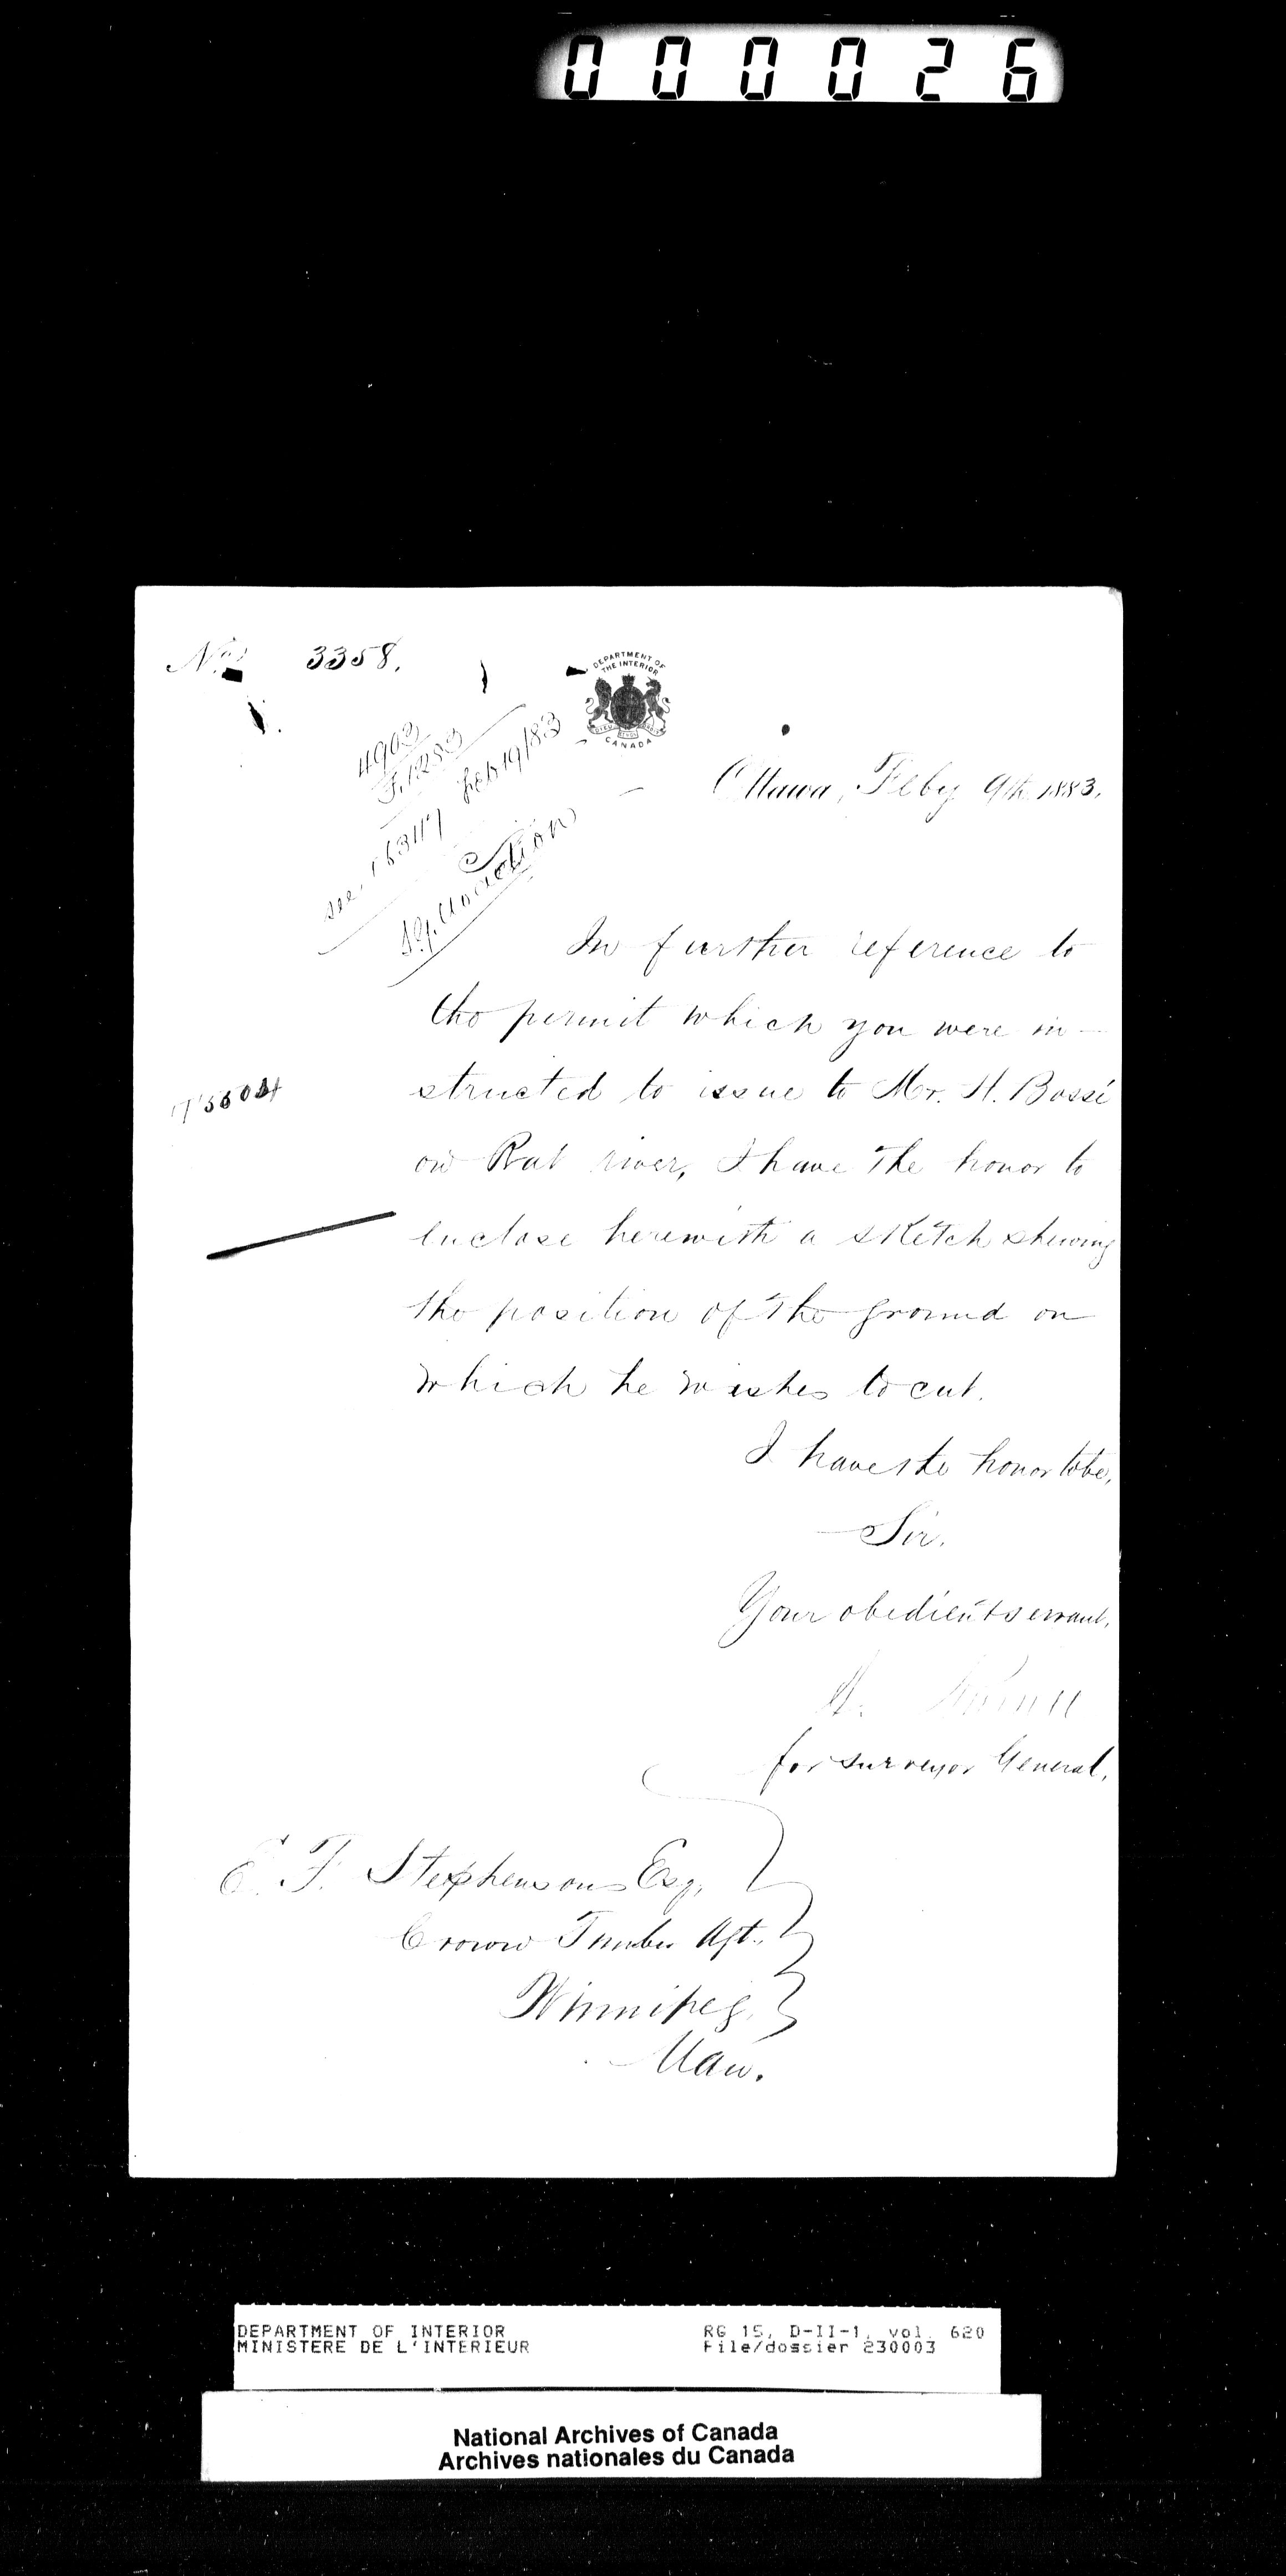 000026
No. 3358.
DEPARTMENT OF
THE INTERIOR
CANADA
4903
F. 1283
Feb 19/83
Ottawa, Feby 9th 1883.
In further reference to
the permit which you were in-
structed to issue to Mr. H. Bossé
on Rat river, I have the honor to
enclose herewith a sketch shewing
the position of the ground on
which he wishes to cut.
I have the honor to be,
Sir.
Your obedient servant,
for Surveyor General.
E. F. Stephenson Esq.
Crown Timber Agt.
Winnipeg,
Man.
DEPARTMENT OF INTERIOR
MINISTERE DE L'INTERIEUR
RG 15, D-II-1, vol. 620
File/dossier 230003
National Archives of Canada
Archives nationales du Canada